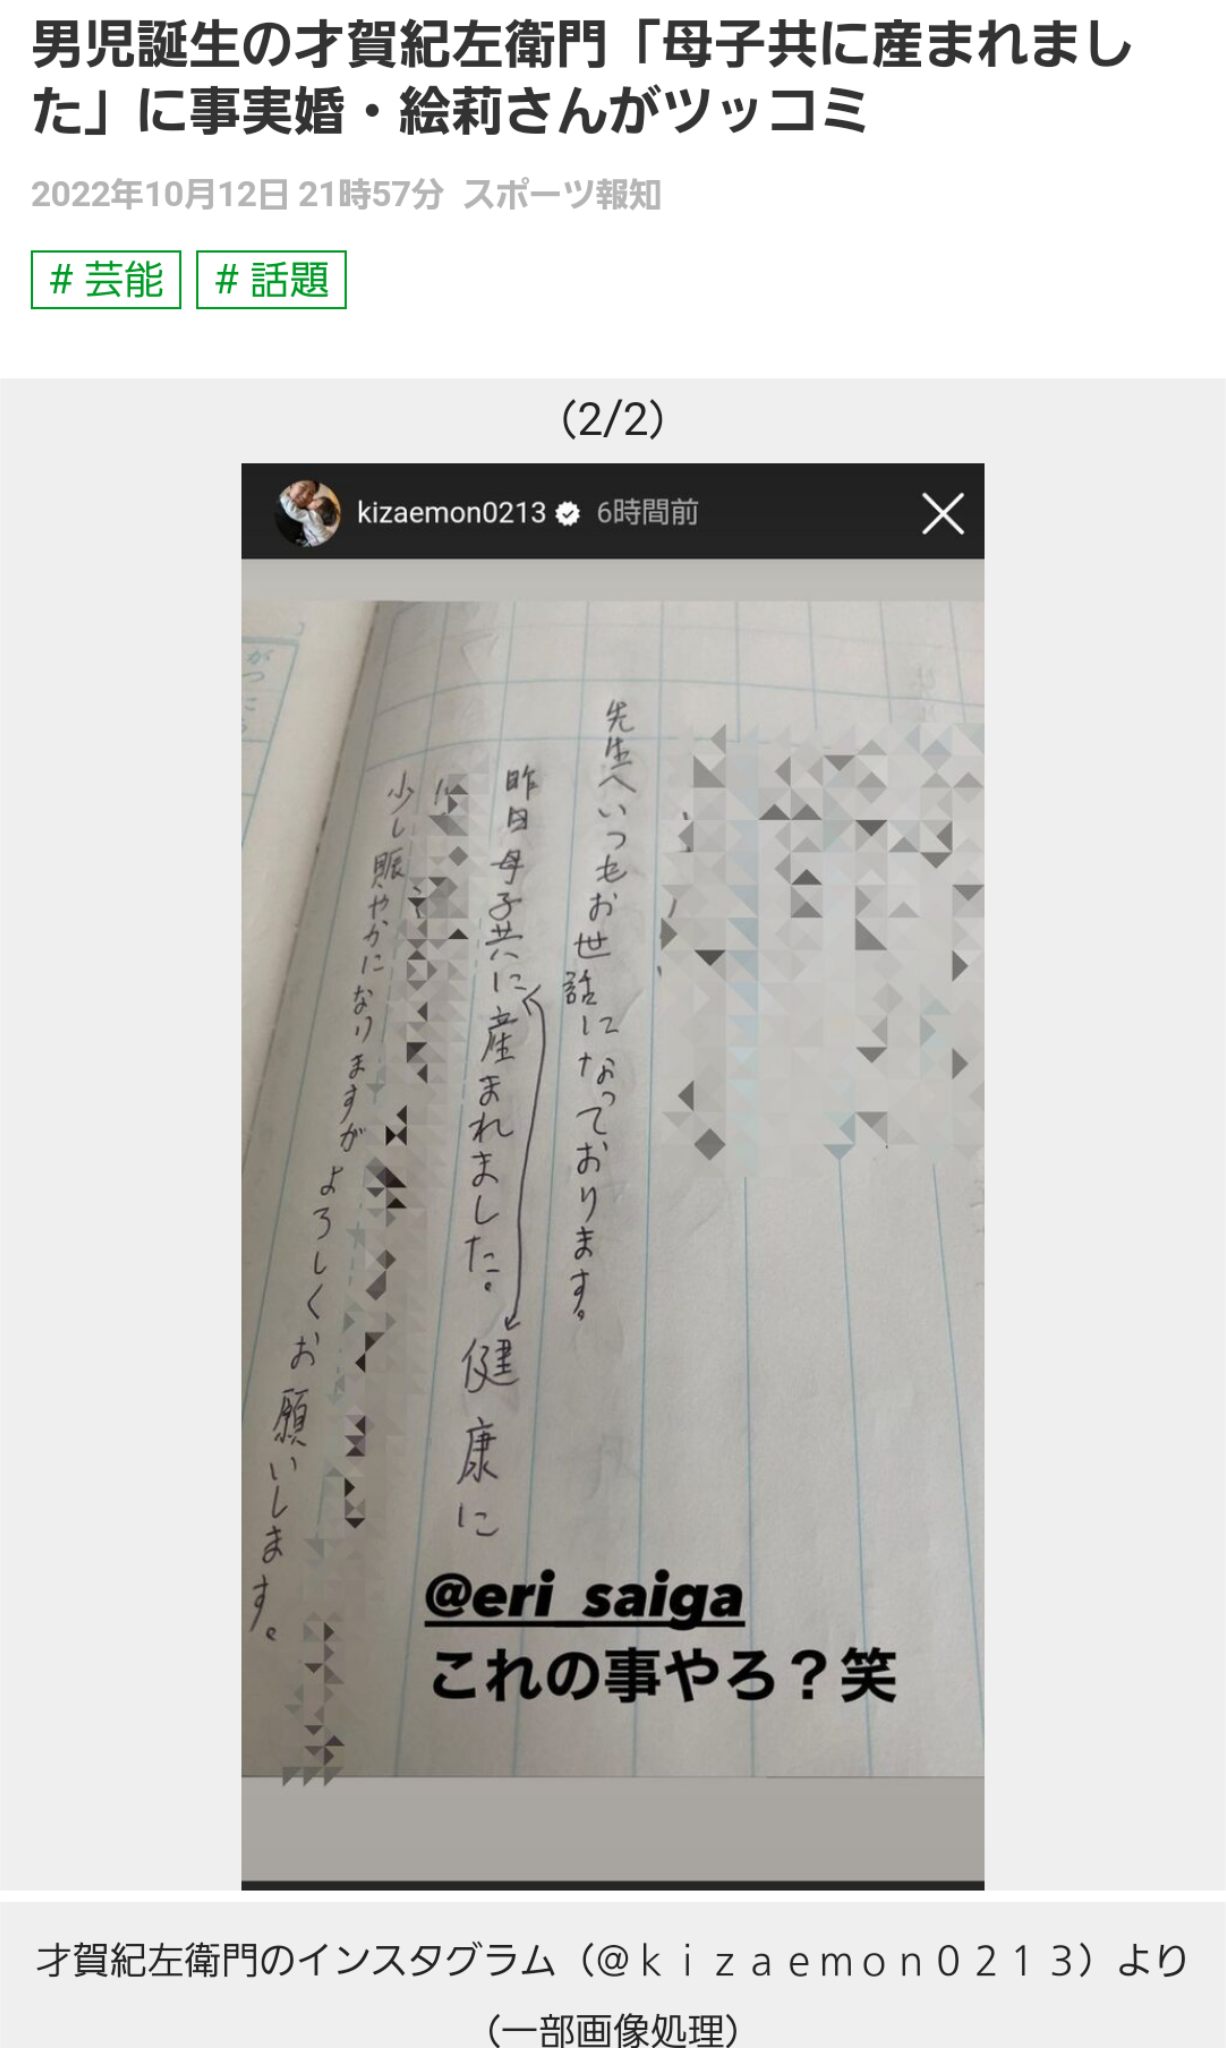 男児誕生の才賀紀左衛門「母子共に産まれまし
た」に事実婚・絵莉さんがツッコミ
2022年10月12日 21時57分 スポーツ報知
# 芸能 # 話題
(2/2)
kizaemon0213 6時間前
先生へいつもお世話になっております。
昨日母子共に産まれました。健康に
少し賑やかになりますがよろしくお願いします。
@eri_saiga
これの事やろ？笑
才賀紀左衛門のインスタグラム（@ｋｉｚａｅｍｏｎ０２１３）より
（一部画像処理）